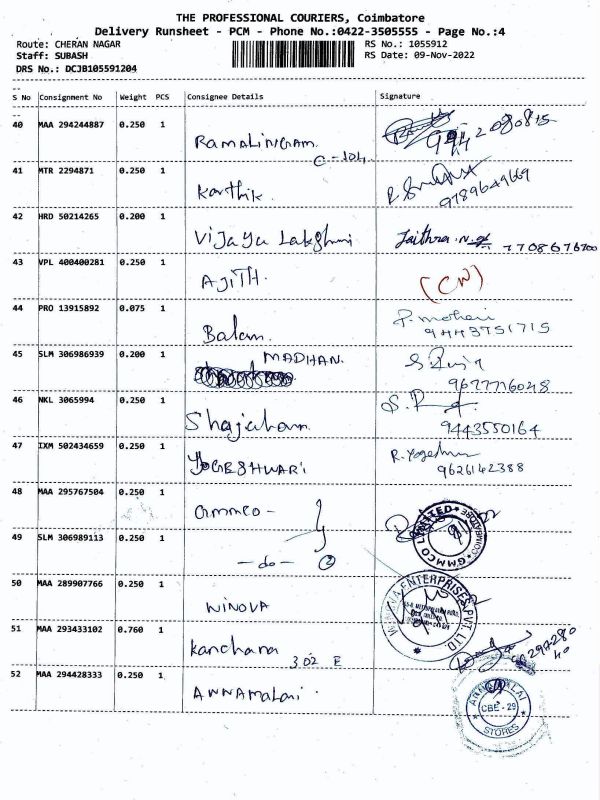 THE PROFESSIONAL COURIERS, Coimbatore
Delivery Runsheet - PCM - Phone No.:0422-3505555 - Page No.:4
Route: CHERAN NAGAR RS No.: 1055912
Staff: SUBASH RS Date: 09-Nov-2022
DRS No.: DCJB105591204
S No Consignment No Weight PCS Consignee Details Signature
40 MAA 294244887 0.250 1 RAMALINGAM C-104
41 MTR 2294871 0.250 1 Karthik. 9789649669
42 HRD 50214265 0.200 1 Vijaya Lakshmi 7708676700
43 VPL 400400281 0.250 1 AJITH. (CN)
44 PRO 13915892 0.075 1 Balam. P. mohan 9443751715
45 SLM 306986939 0.200 1 MADHAN. 9677716028
46 NKL 3065994 0.250 1 Shajahan. 9443550164
47 IXM 502434659 0.250 1 YOGESHWARI 9626142388
48 MAA 295767504 0.250 1 Gmmco - GMMCO LIMITED COIMBATORE
49 SLM 306989113 0.250 1 -do- 2
50 MAA 289907766 0.250 1 WINOVA ENTERPRISES PVT. LTD.
51 MAA 293433102 0.760 1 Kanchana 302 E
52 MAA 294428333 0.250 1 ANNAMALAI. ANNAMALAI STORES CBE - 29